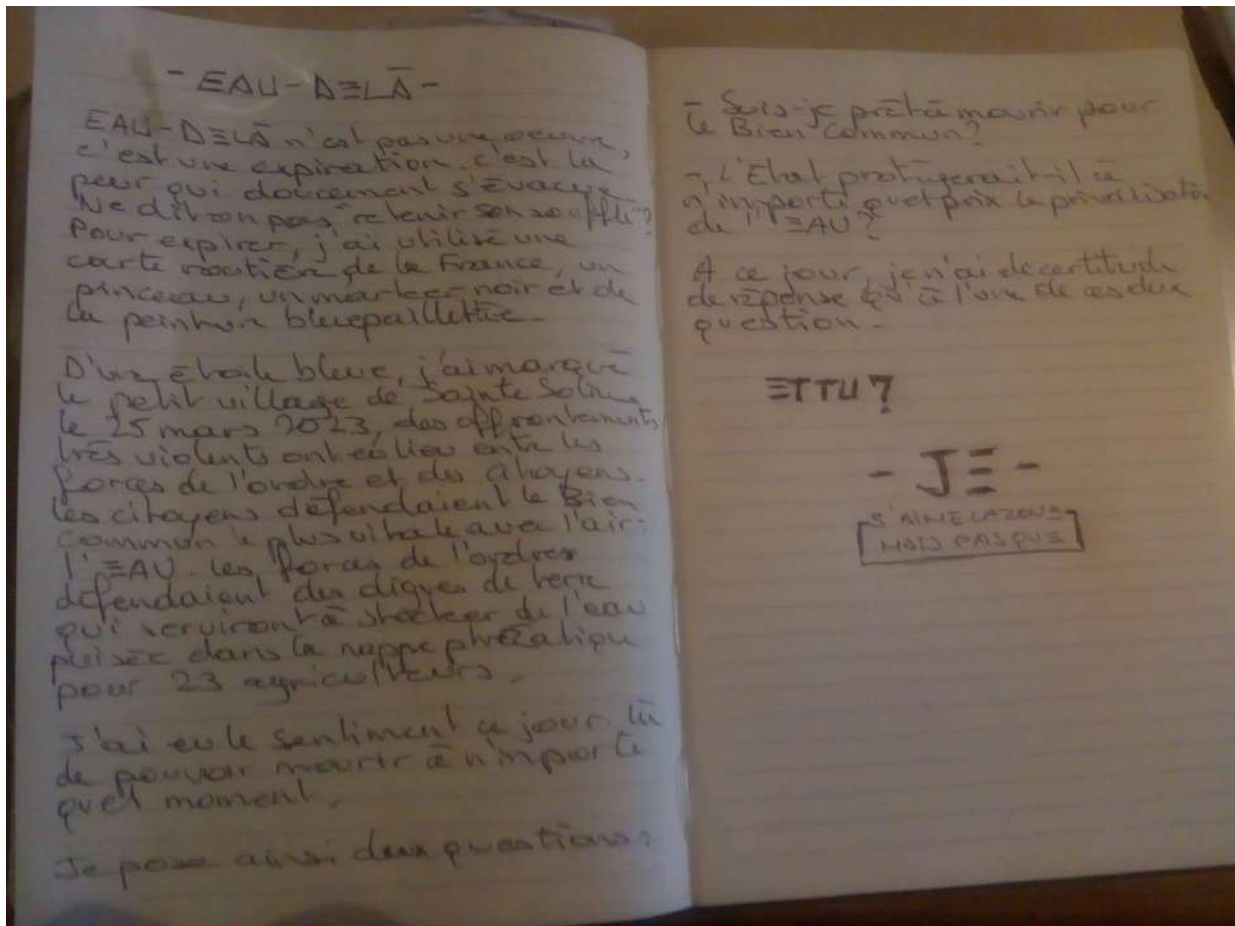 - EAU-DELÀ -
EAU-DELÀ n'est pas une oeuvre,
c'est une expiration. c'est la
peur qui doucement s'évacue.
Ne dit on pas "retenir son souffle"?
Pour expirer, j'ai utilisé une
carte routière de la France, un
pinceau, un marker noir et de
la peinture bleue pailletée.
D'une étoile bleue, j'ai marqué
le petit village de Sainte Soline
le 25 mars 2023, des affrontements
très violents ont eu lieu entre les
forces de l'ordre et des citoyens.
les citoyens défendaient le Bien
commun le plus vitale avec l'air:
l'EAU. les forces de l'ordres
défendaient des digues de terre
qui serviront à stocker de l'eau
puisée dans la nappe phréatique
pour 23 agriculteurs.
J'ai eu le sentiment ce jour là
de pouvoir mourir à n'importe
quel moment.
Je pose ainsi deux questions:
- Suis-je prêt à mourir pour
le Bien commun?
- L'Etat protégerait-il à
n'importe quel prix la privatisation
de l'EAU?
A ce jour, je n'ai de certitude
de réponse qu'à l'une de ces deux
question.
ET TU ?
- JE -
S'AIME LA ZONE
MAIS PAS QUE